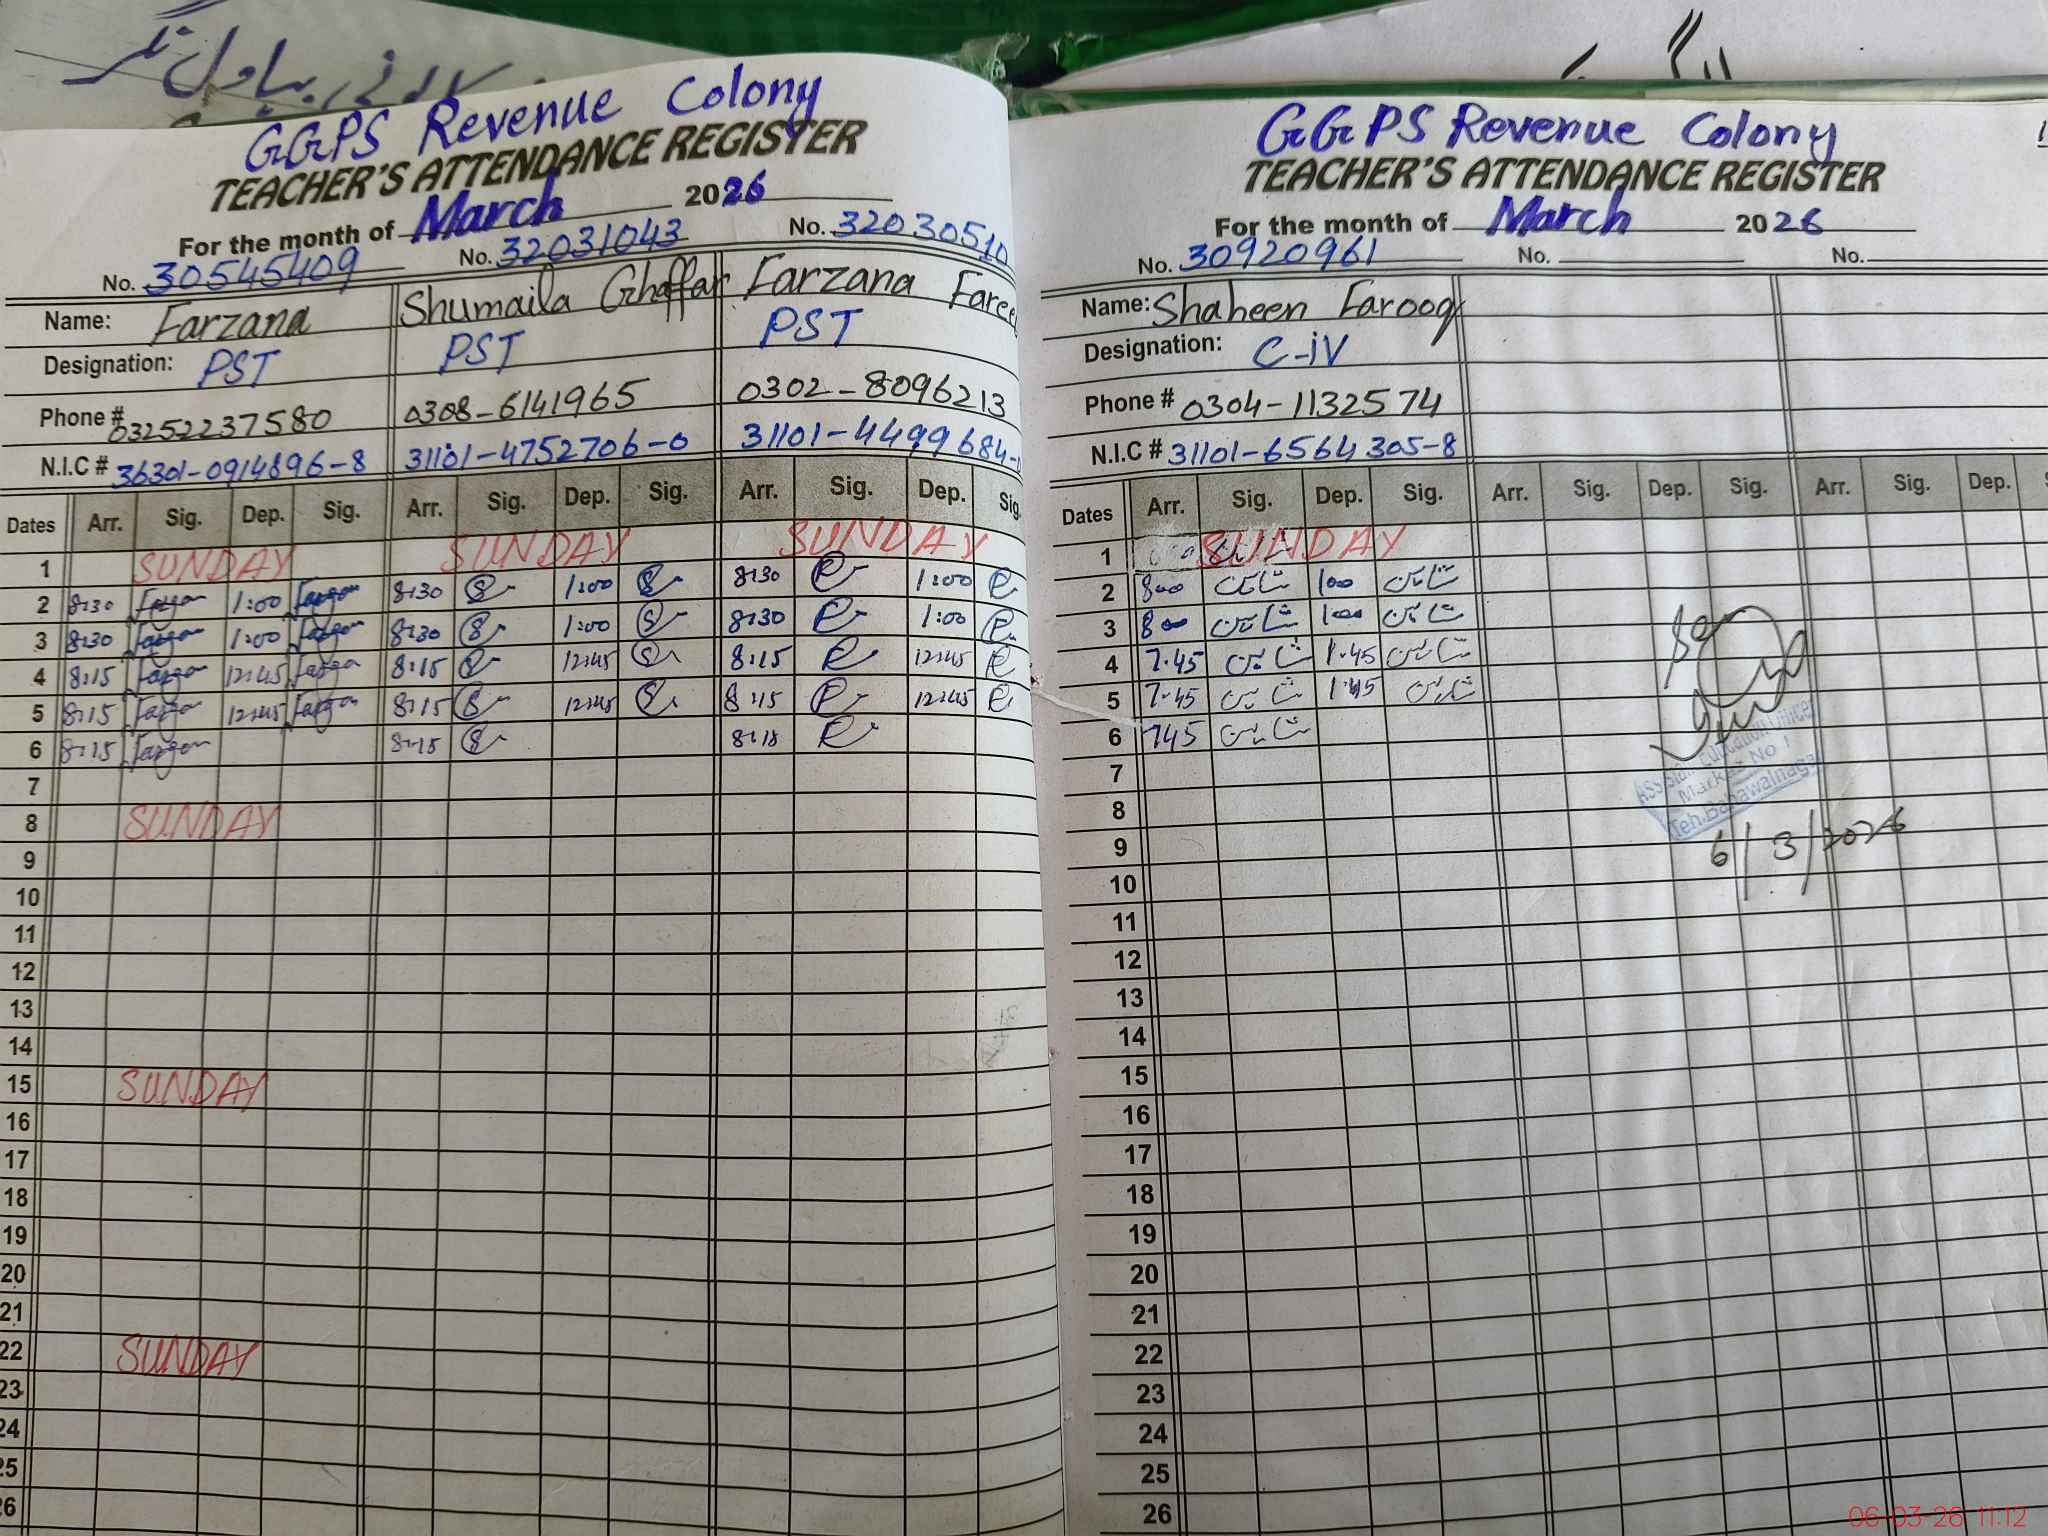 GGPS Revenue Colony
TEACHER'S ATTENDANCE REGISTER
For the month of March 2026
No. 30545409 No. 32031043 No. 32030510
Name: Farzana Shumaila Ghaffar Farzana
Designation: PST PST PST
Phone # 03252237580 0308-6141965 0302-8096213
N.I.C # 36301-0914896-8 31101-4752706-0 31101-4499684-
Dates Arr. Sig. Dep. Sig. Arr. Sig. Dep. Sig. Arr. Sig. Dep. Sig.
1 SUNDAY SUNDAY SUNDAY
2 8:30 1:00 8:30 1:00 8:30 1:00
3 8:30 1:00 8:30 1:00 8:30 1:00
4 8:15 12:45 8:15 12:45 8:15 12:45
5 8:15 12:45 8:15 12:45 8:15 12:45
6 8:15 8:15
7
8 SUNDAY
9
10
11
12
13
14
15 SUNDAY
16
17
18
19
20
21
22 SUNDAY
23
24
25
26
GGPS Revenue Colony
TEACHER'S ATTENDANCE REGISTER
For the month of March 2026
No. 30920961 No. No.
Name: Shaheen Farooq
Designation: C-iV
Phone # 0304-1132574
N.I.C # 31101-6564305-8
Dates Arr. Sig. Dep. Sig. Arr. Sig. Dep. Sig. Arr. Sig. Dep.
1 SUNDAY
2 800 شاہین 100 شاہین
3 800 شاہین 100 شاہین
4 7.45 شاہین 1.45 شاہین
5 7.45 شاہین 1.45 شاہین
6 745 شاہین
7
8
9
10
11
12
13
14
15
16
17
18
19
20
21
22
23
24
25
26
Assistant Education Officer
Markaz No 1
Teh. Bahawalnagar
6/3/2026
06-03-26 11:12